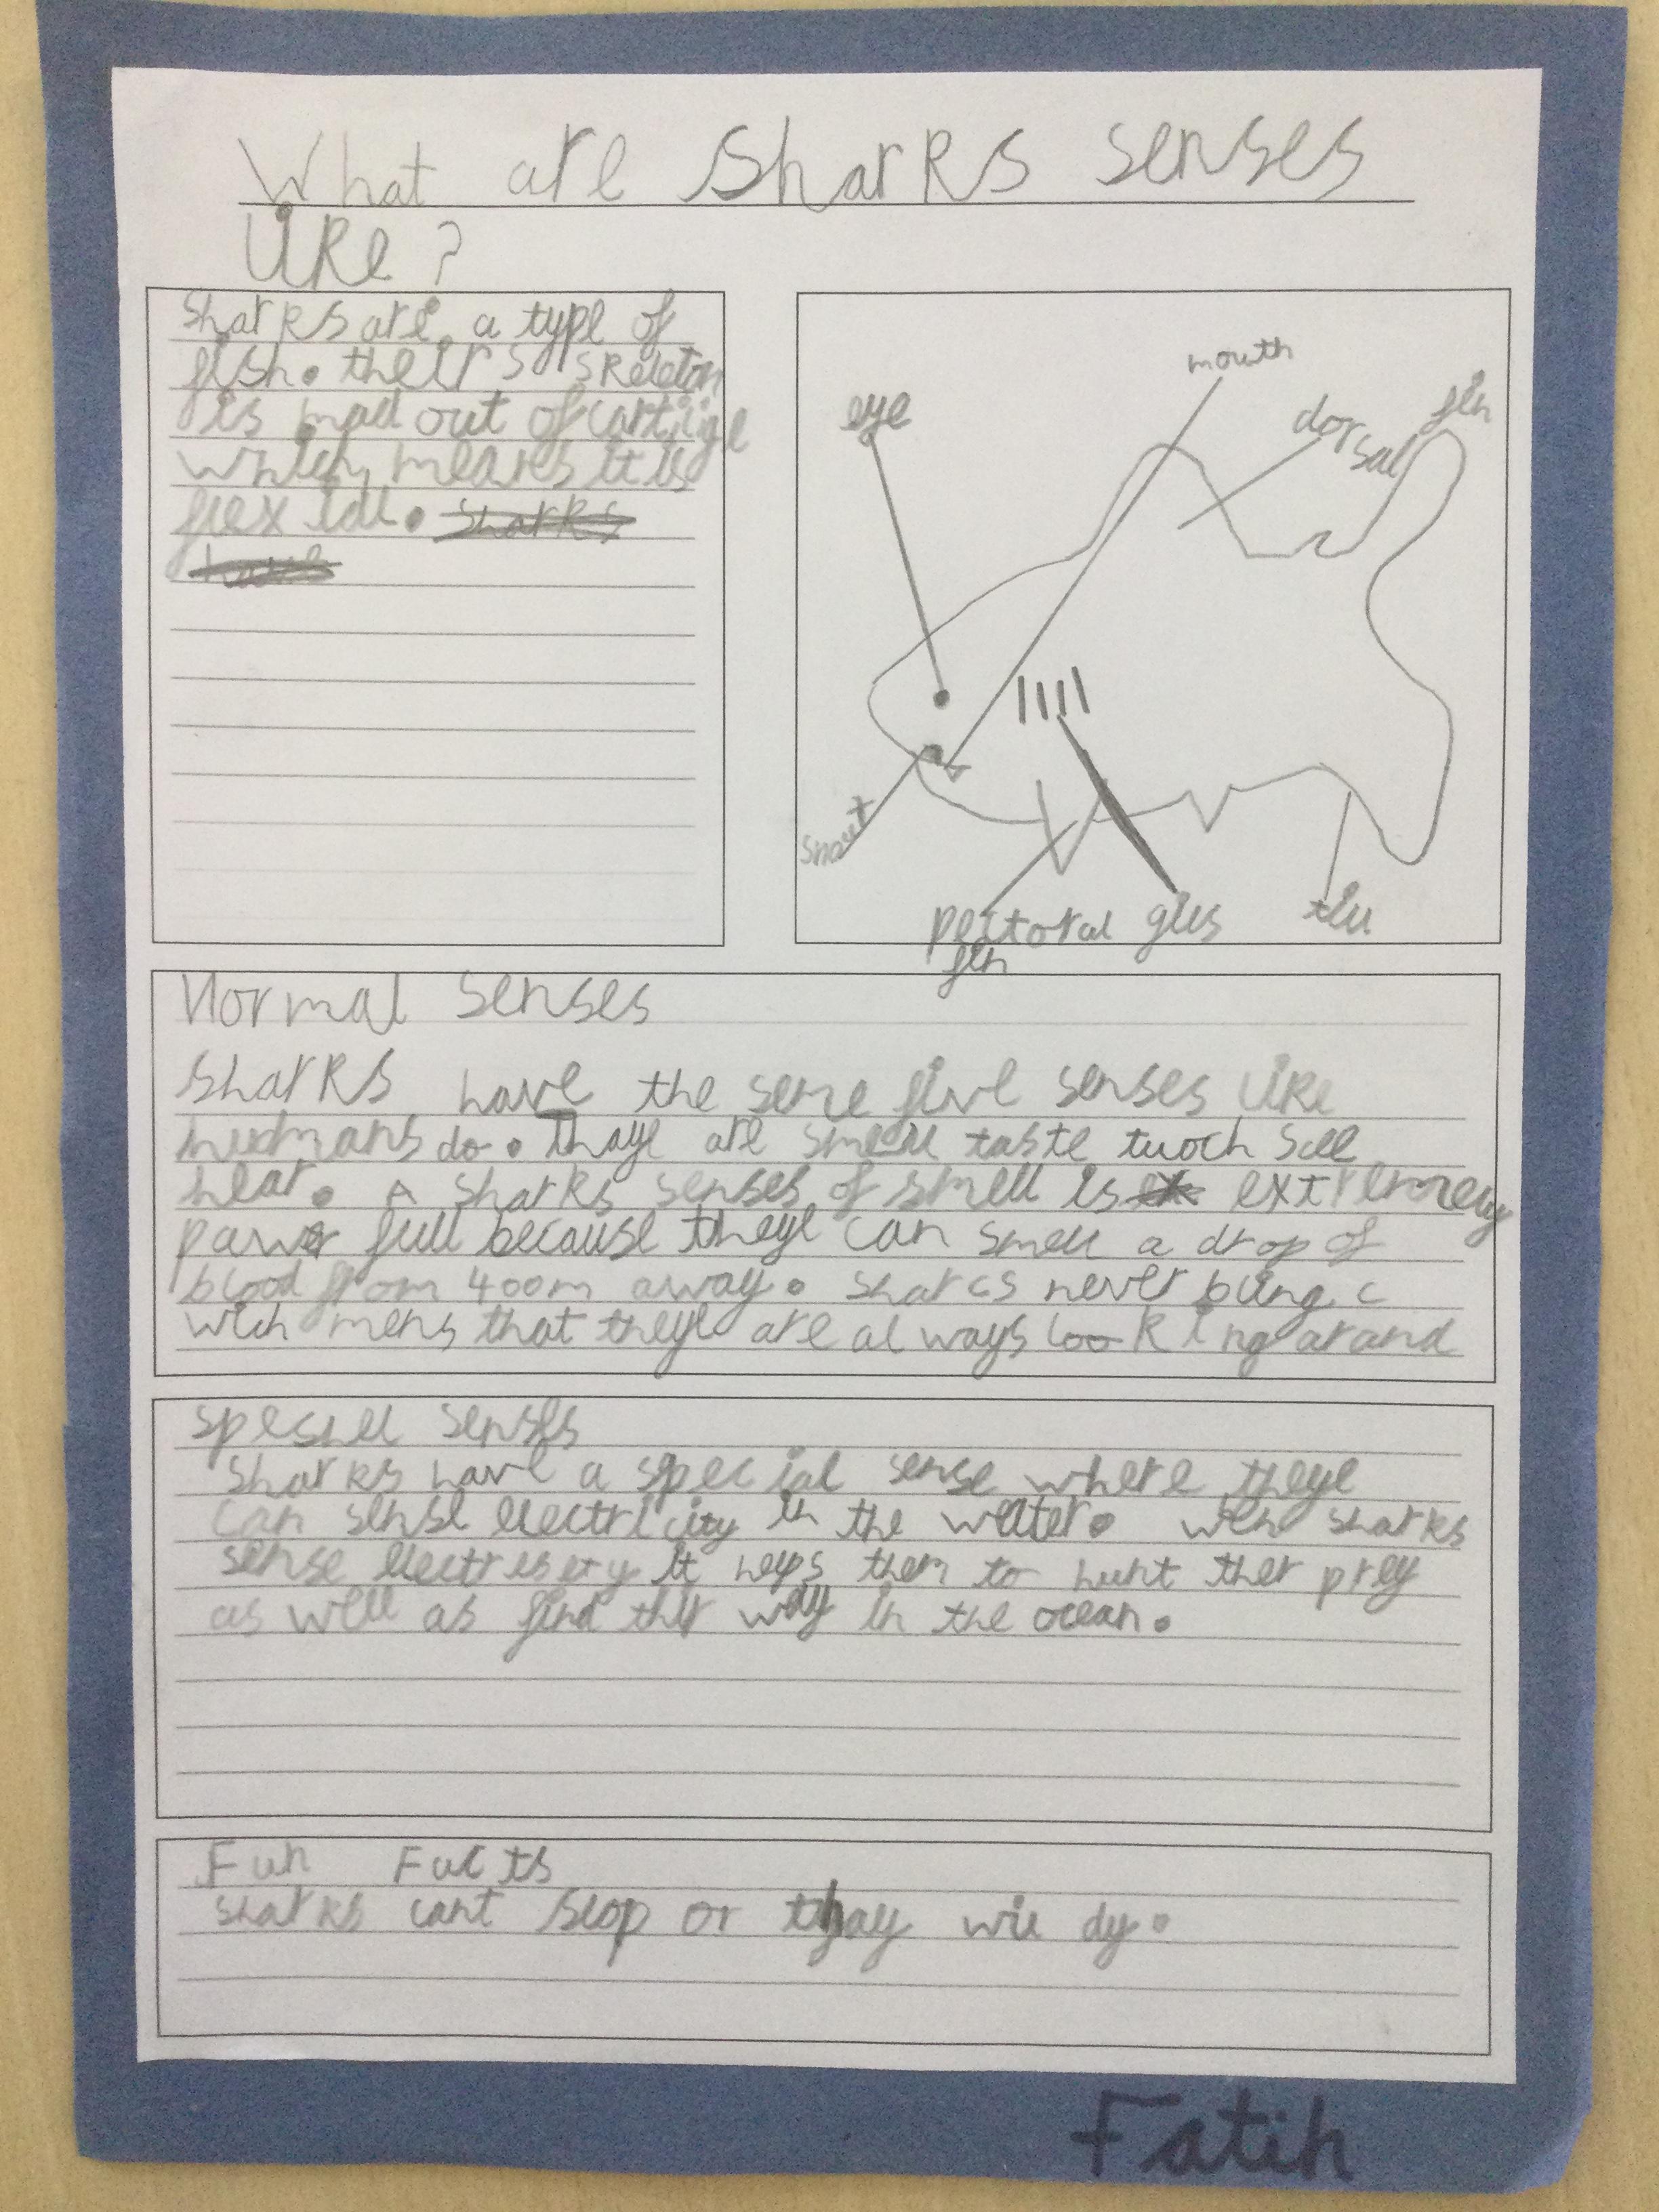 What are Sharks senses
like?
Sharks are a type of
fish. theirs skeleton
is mad out of cartilige
which means it is
flexible. Sharks
have
mouth
eye
dorsal fin
snout
pectoral gills
fin
Normal senses
Sharks have the same five senses like
hudmans do. thaye are smell taste tuoch see
hear. A sharks senses of smell is ex extremely
pawer full because theye can smell a drop of
blood from 400m away. sharcs never bling c
wich mens that theye are always looking arand
speshel senses
Sharks have a special sense where theye
can sense electricity in the water. wen sharks
sense electresety it helps them to hunt ther prey
as well as find thir way in the ocean.
Fun Facts
sharks cant slop or thay will dy.
Fatih